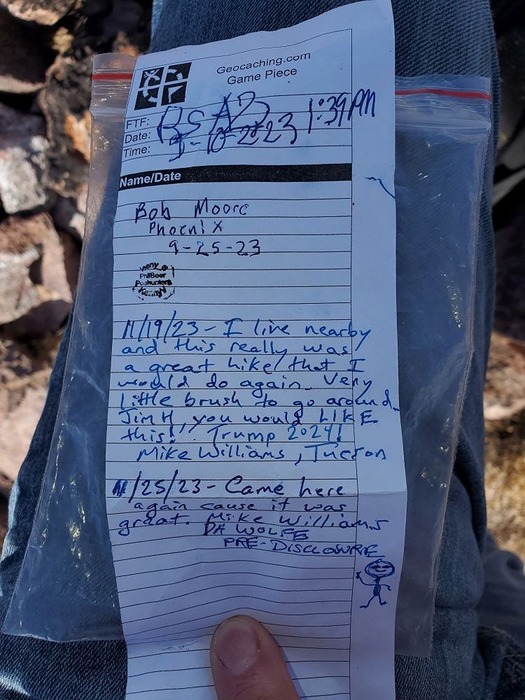 Geocaching.com
Game Piece
FTF:
Date:
Time:
1:39PM
Name/Date
Bob Moore
Phoenix
9-25-23
11/19/23 - I live nearby
and this really was
a great hike that I
would do again. Very
little brush to go around.
Jim H, you would LIKE
this! Trump 2024!
Mike Williams, Tucson
11/25/23 - Came here
again cause it was
great. Mike Williams
DA WOLFE
PRE-DISCLOSURE